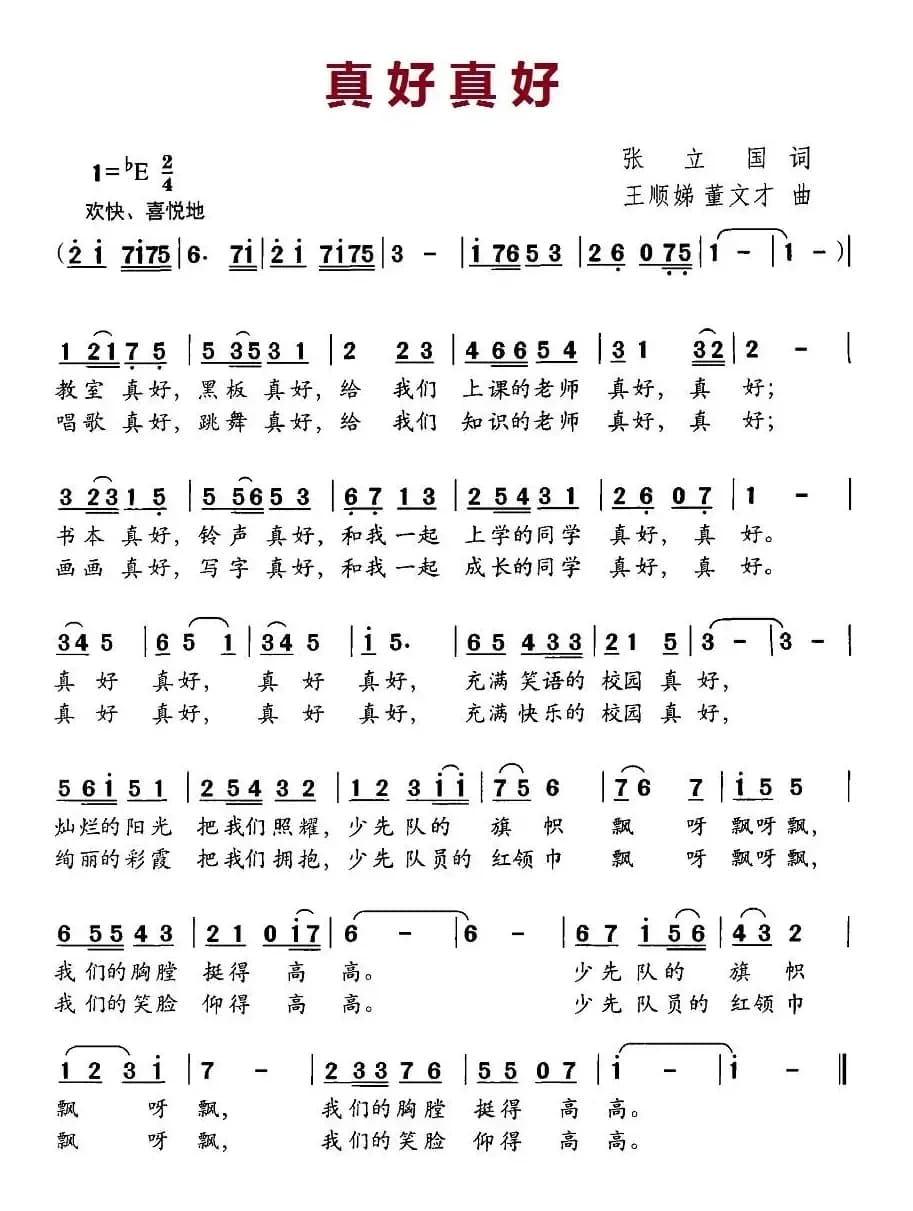 真好真好
张 立 国 词
1=♭E 2/4
王顺娣 董文才 曲
欢快、喜悦地
(2̇ 1̇ 71̇75 | 6. 71̇ | 2̇ 1̇ 71̇75 | 3 - | 1̇ 7653 | 26̣ 07̣5̣ | 1 - | 1 -) |
1 217̣5̣ | 5 3531 | 2 23 | 46654 | 31 32 | 2 - |
教室 真好,黑板 真好,给 我们 上课的老师 真好,真 好;
唱歌 真好,跳舞 真好,给 我们 知识的老师 真好,真 好;
3 2315̣ | 5 5653 | 6̣7̣ 13 | 25431 | 26̣ 07̣ | 1 - |
书本 真好,铃声 真好,和我一起 上学的同学 真好,真 好。
画画 真好,写字 真好,和我一起 成长的同学 真好,真 好。
345 | 65 1 | 345 | 1̇ 5. | 65 433 | 21 5 | 3 - | 3 - |
真 好 真好, 真 好 真好, 充满 笑语的 校园 真好,
真 好 真好, 真 好 真好, 充满 快乐的 校园 真好,
561̇ 51 | 25432 | 12 31̇1̇ | 75 6 | 76 7 | 1̇55 |
灿烂的阳光 把我们照耀,少先队的 旗 帜 飘 呀 飘呀飘,
绚丽的彩霞 把我们拥抱,少先队员的 红领巾 飘 呀 飘呀飘,
6 5543 | 21 01̇7 | 6 - | 6 - | 67 1̇56 | 43 2 |
我们的胸膛 挺得 高 高。 少先队的 旗 帜
我们的笑脸 仰得 高 高。 少先队员的 红领巾
12 31̇ | 7 - | 23376 | 5507 | 1̇ - | 1̇ - ‖
飘 呀 飘, 我们的胸膛 挺得 高 高。
飘 呀 飘, 我们的笑脸 仰得 高 高。